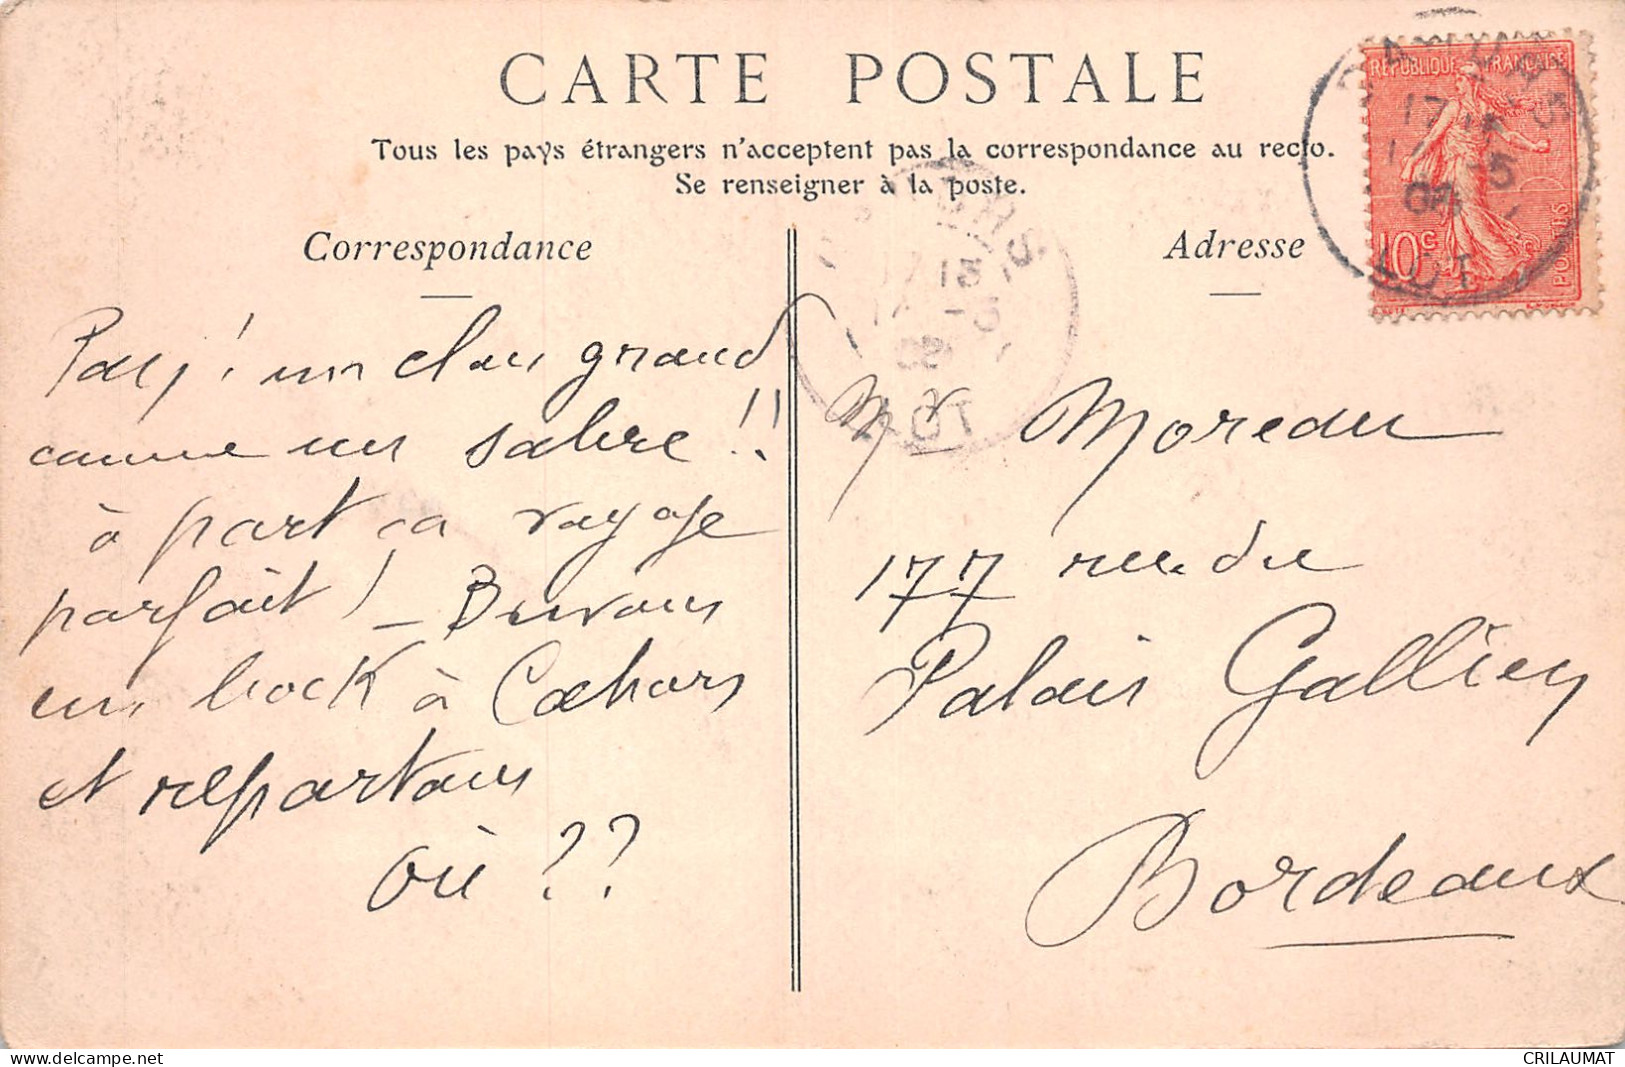 CARTE POSTALE
Tous les pays étrangers n'acceptent pas la correspondance au recto.
Se renseigner à la poste.
Correspondance
Adresse
RÉPUBLIQUE FRANÇAISE
10c
POSTES
LOT
LOT
! un clou grand
comme un sabre!!
à part ça voyage
parfait! _ Buvons
un bock à Cahors
et repartons
où ??
Mr Moreau
177 rue du
Palais Gallien
Bordeaux
CRILAUMAT